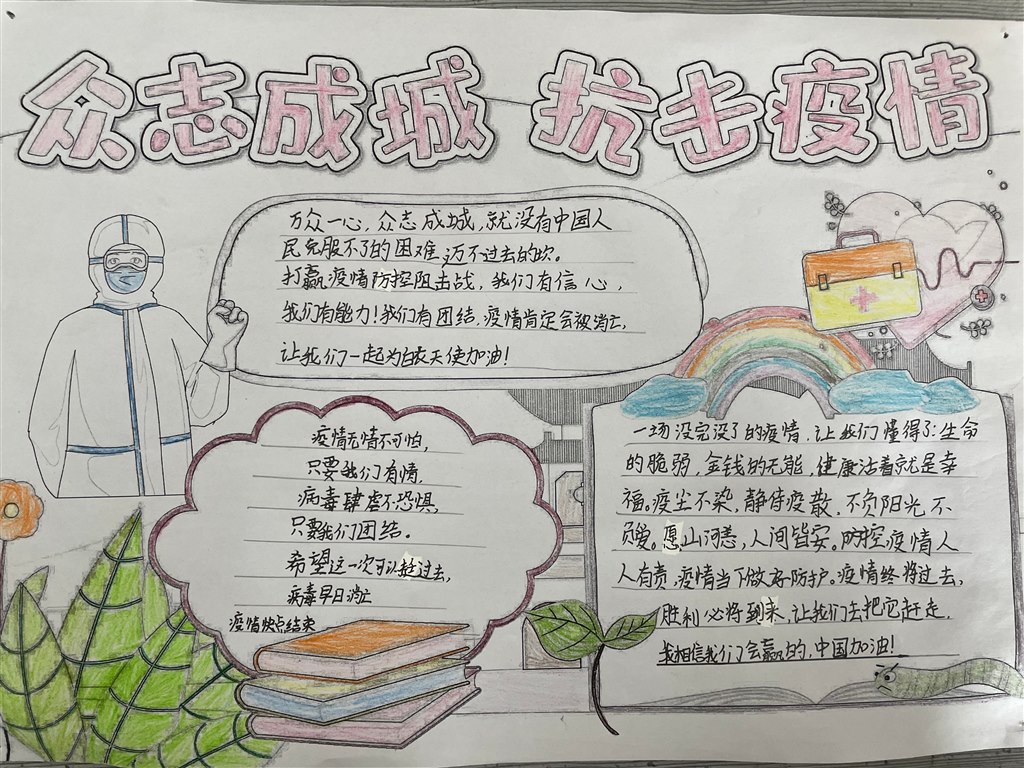 众志成城 抗击疫情
万众一心，众志成城，就没有中国人
民克服不了的困难，迈不过去的坎。
打赢疫情防控阻击战，我们有信心，
我们有能力！我们有团结，疫情肯定会被消亡，
让我们一起为白衣天使加油！
疫情无情不可怕，
只要我们有情，
病毒肆虐不恐惧，
只要我们团结。
希望这一次可以趁过去，
病毒早日消亡
疫情快点结束
一场没完没了的疫情，让我们懂得了：生命
的脆弱，金钱的无能，健康活着就是幸
福。疫尘不染，静待疫散，不负阳光，不
负爱。愿山河恙，人间皆安。防控疫情人
人有责，疫情当下做好防护。疫情终将过去，
胜利必将到来，让我们去把它赶走，
我相信我们会赢的，中国加油！